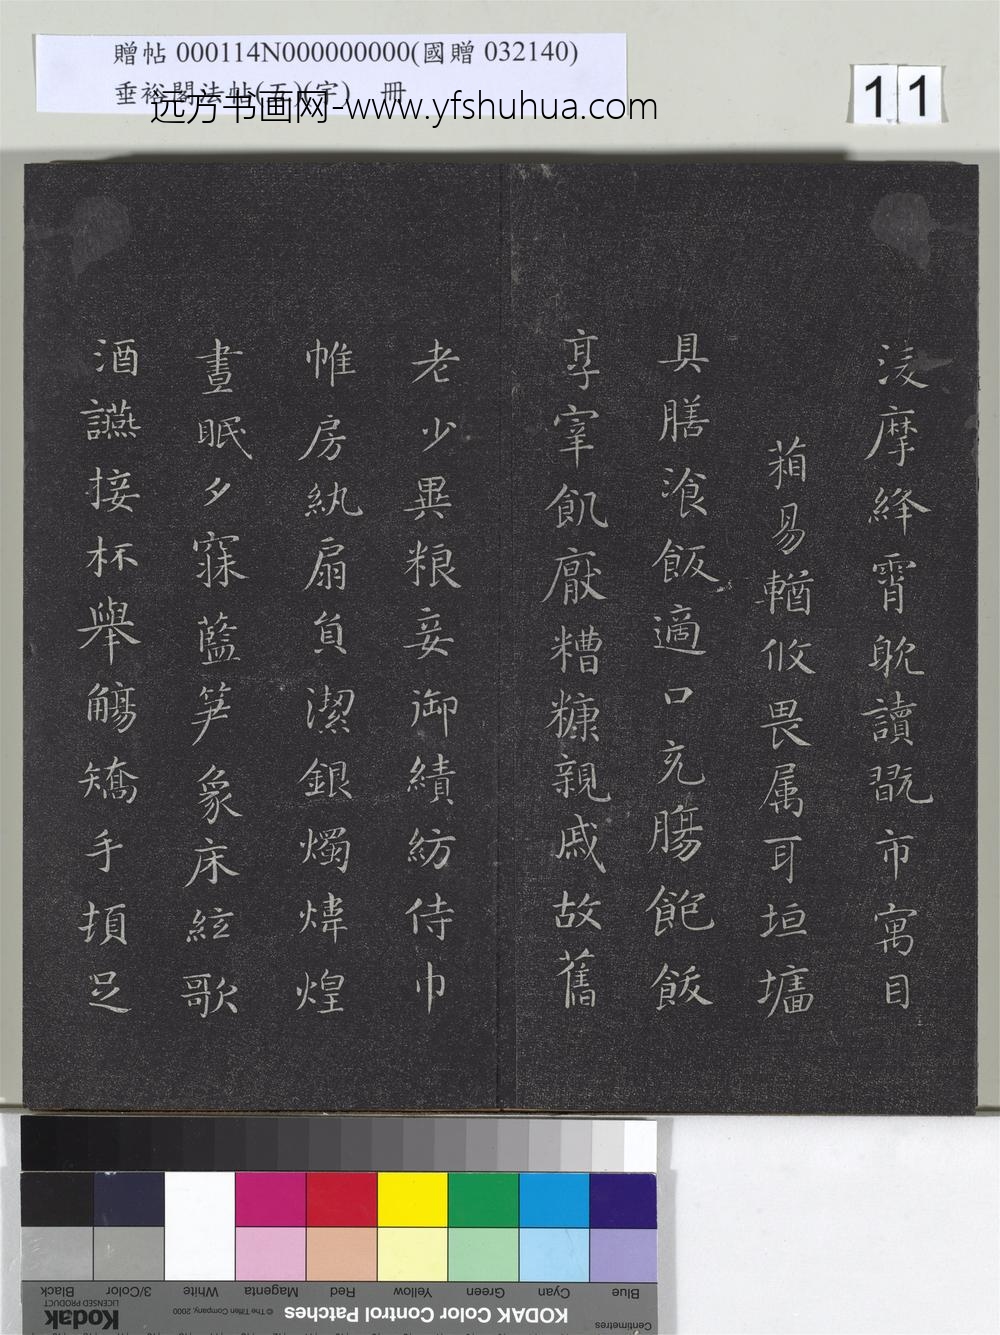 贈帖 000114N000000000(國贈 032140)
垂裕閣法帖(五)(字) 冊
远方书画网-www.yfshuhua.com
11
淩摩絳霄耽讀翫市寓目
箱易輶攸畏属耳垣墻
具膳飡飯適口充腸飽飫
享宰飢厭糟糠親戚故舊
老少異粮妾御績紡侍巾
帷房紈扇員潔銀燭煒煌
晝眠夕寐藍笋象床絃歌
酒讌接杯舉觴矯手頓足
Blue Cyan Green Yellow Red Magenta White 3/Color Black
Centimetres
KODAK Color Control Patches
© The Tiffen Company, 2000
Kodak
LICENSED PRODUCT